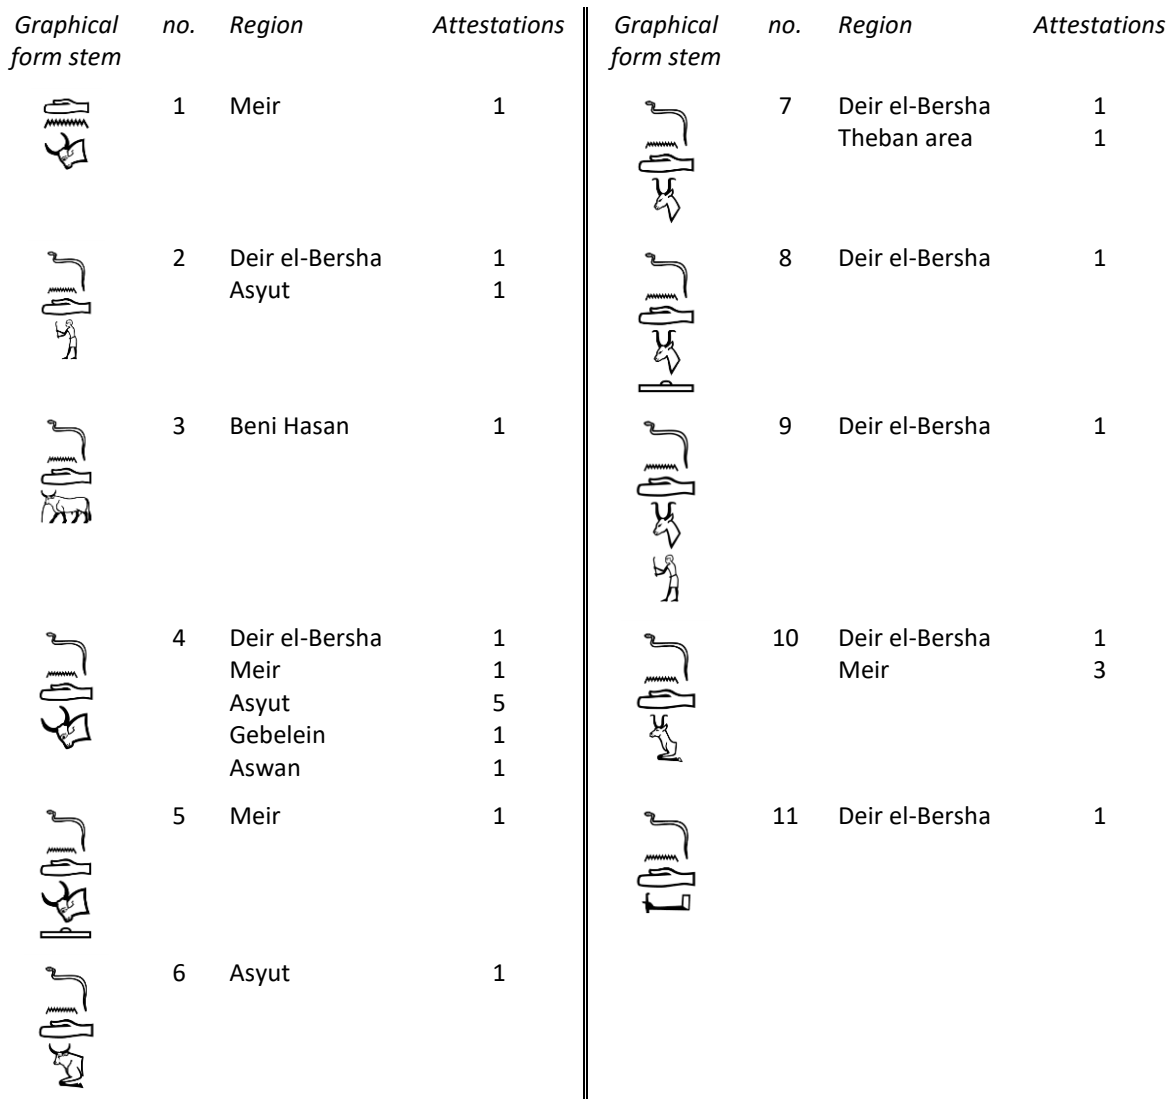 Graphical form stem no. Region Attestations
1 Meir 1
2 Deir el-Bersha 1
Asyut 1
3 Beni Hasan 1
4 Deir el-Bersha 1
Meir 1
Asyut 5
Gebelein 1
Aswan 1
5 Meir 1
6 Asyut 1
Graphical form stem no. Region Attestations
7 Deir el-Bersha 1
Theban area 1
8 Deir el-Bersha 1
9 Deir el-Bersha 1
10 Deir el-Bersha 1
Meir 3
11 Deir el-Bersha 1